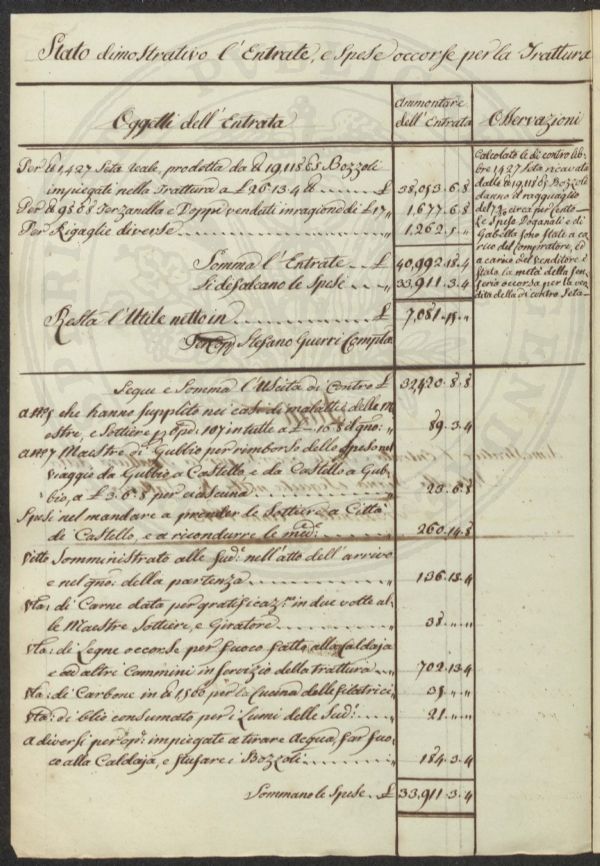 Stato dimostrativo l'Entrate, e Spese occorse per la Trattura
Oggetti dell'Entrata
Ammontare dell'Entrata
Osservazioni
Per ℔ 1,427 Seta reale, prodotta da ℔ 19,118 65 Bozzoli
impiegati nella Trattura a £ 26.13.4 ℔ £ 38,053.6.8
Per ℔ 98 Terzanella e Doppi venduti in ragione di £ 17 „ 1,677.6.8
Per Rigaglie diverse „ 1,262.5.„
Somma l'Entrate £ 40,992.18.4
Si defalcano le Spese „ 33,911.3.4
Resta l'Utile netto in £ 7,081.15.„
Stefano Guerri Compila
Calcolate le di contro lib-
bre 1,427 Seta ricavata
dalle ℔ 19,118 65 Bozzoli
danno il ragguaglio
del 7 circa per Cento
Le Spese Doganali e di
Gabella sono State a ca-
rico del Compratore, ed
a carico del Venditore è
Stata la metà della Sen-
seria occorsa per la ven-
dita della di contro Seta
Segue e Somma l'Uscita di Contro £ 32,420.8.8
a N° 5 che hanno supplito nei casi di malattie delle M
stre, e Sottiere p opē: 107 in tutte a £ -.16.8 il gno: „ 89.3.4
a N° 7 Maestre di Gubbio per rimborso delle Speso nel
viaggio da Gubbio a Castello, e da Castello a Gub-
bio, a £ 3.6.8 per ciascuna „ 23.6.8
Spesi nel mandare a prender le Sottiere a Città
di Castello, e a ricondurre le med: „ 260.14.8
Vitto Somministrato alle Sud: nell'atto dell'arrivo
e nel gno: della partenza „ 136.18.4
Vta: di Carne data per gratificaz: in due volte al-
le Maestre Sottiere, e Giratore „ 38.„.„
Vta: di Legne occorse per fuoco fatto alla Caldaja
e ad altri Cammini in servizio della trattura „ 702.13.4
Vta: di Carbone in ℔ 1,500 per la Cucina delle Filatrici „ 35.„.„
Vta: di Olio consumato per i Lumi delle Sud: „ 21.„.„
a diversi per opē: impiegate a tirare Acqua, far fuo-
co alla Caldaja, e stufare i Bozzoli „ 184.3.4
Sommano le Spese £ 33,911.3.4